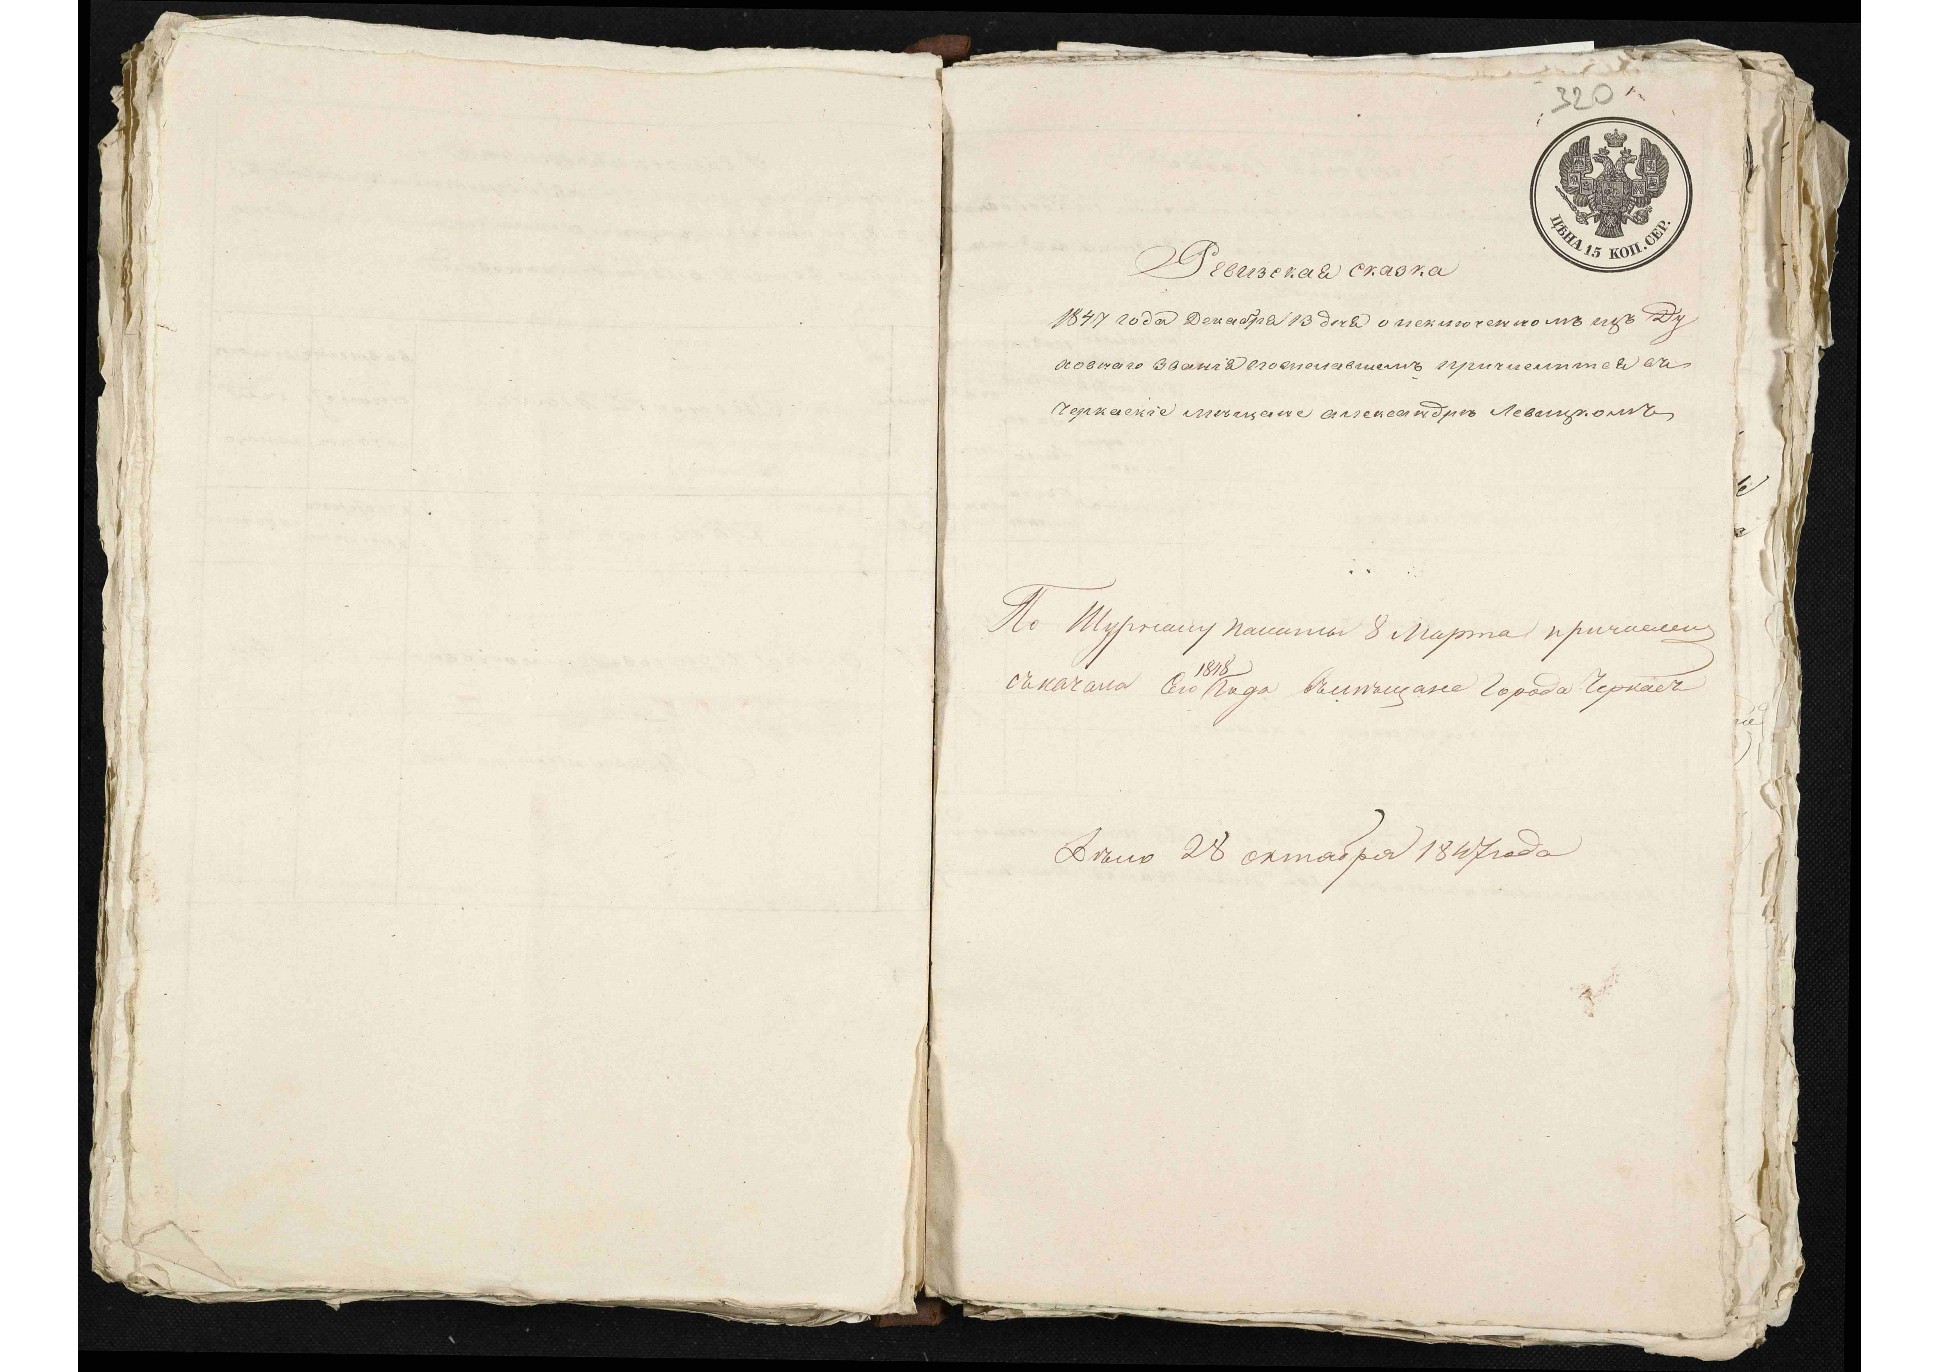 320
ЦѢНА 15 КОП. СЕР.
Ревизская сказка
1847 года Декабря 13 дня о исключенномъ изъ Ду
ховнаго званія пожелавшемъ причислится въ
Черкаскіе мѣщане Александрѣ Левицкомъ
По Журналу палаты 8 Марта причислен
съ начала Сего 1848 Года въ мѣщане Города Черкасъ
Дѣло 28 октября 1847 года